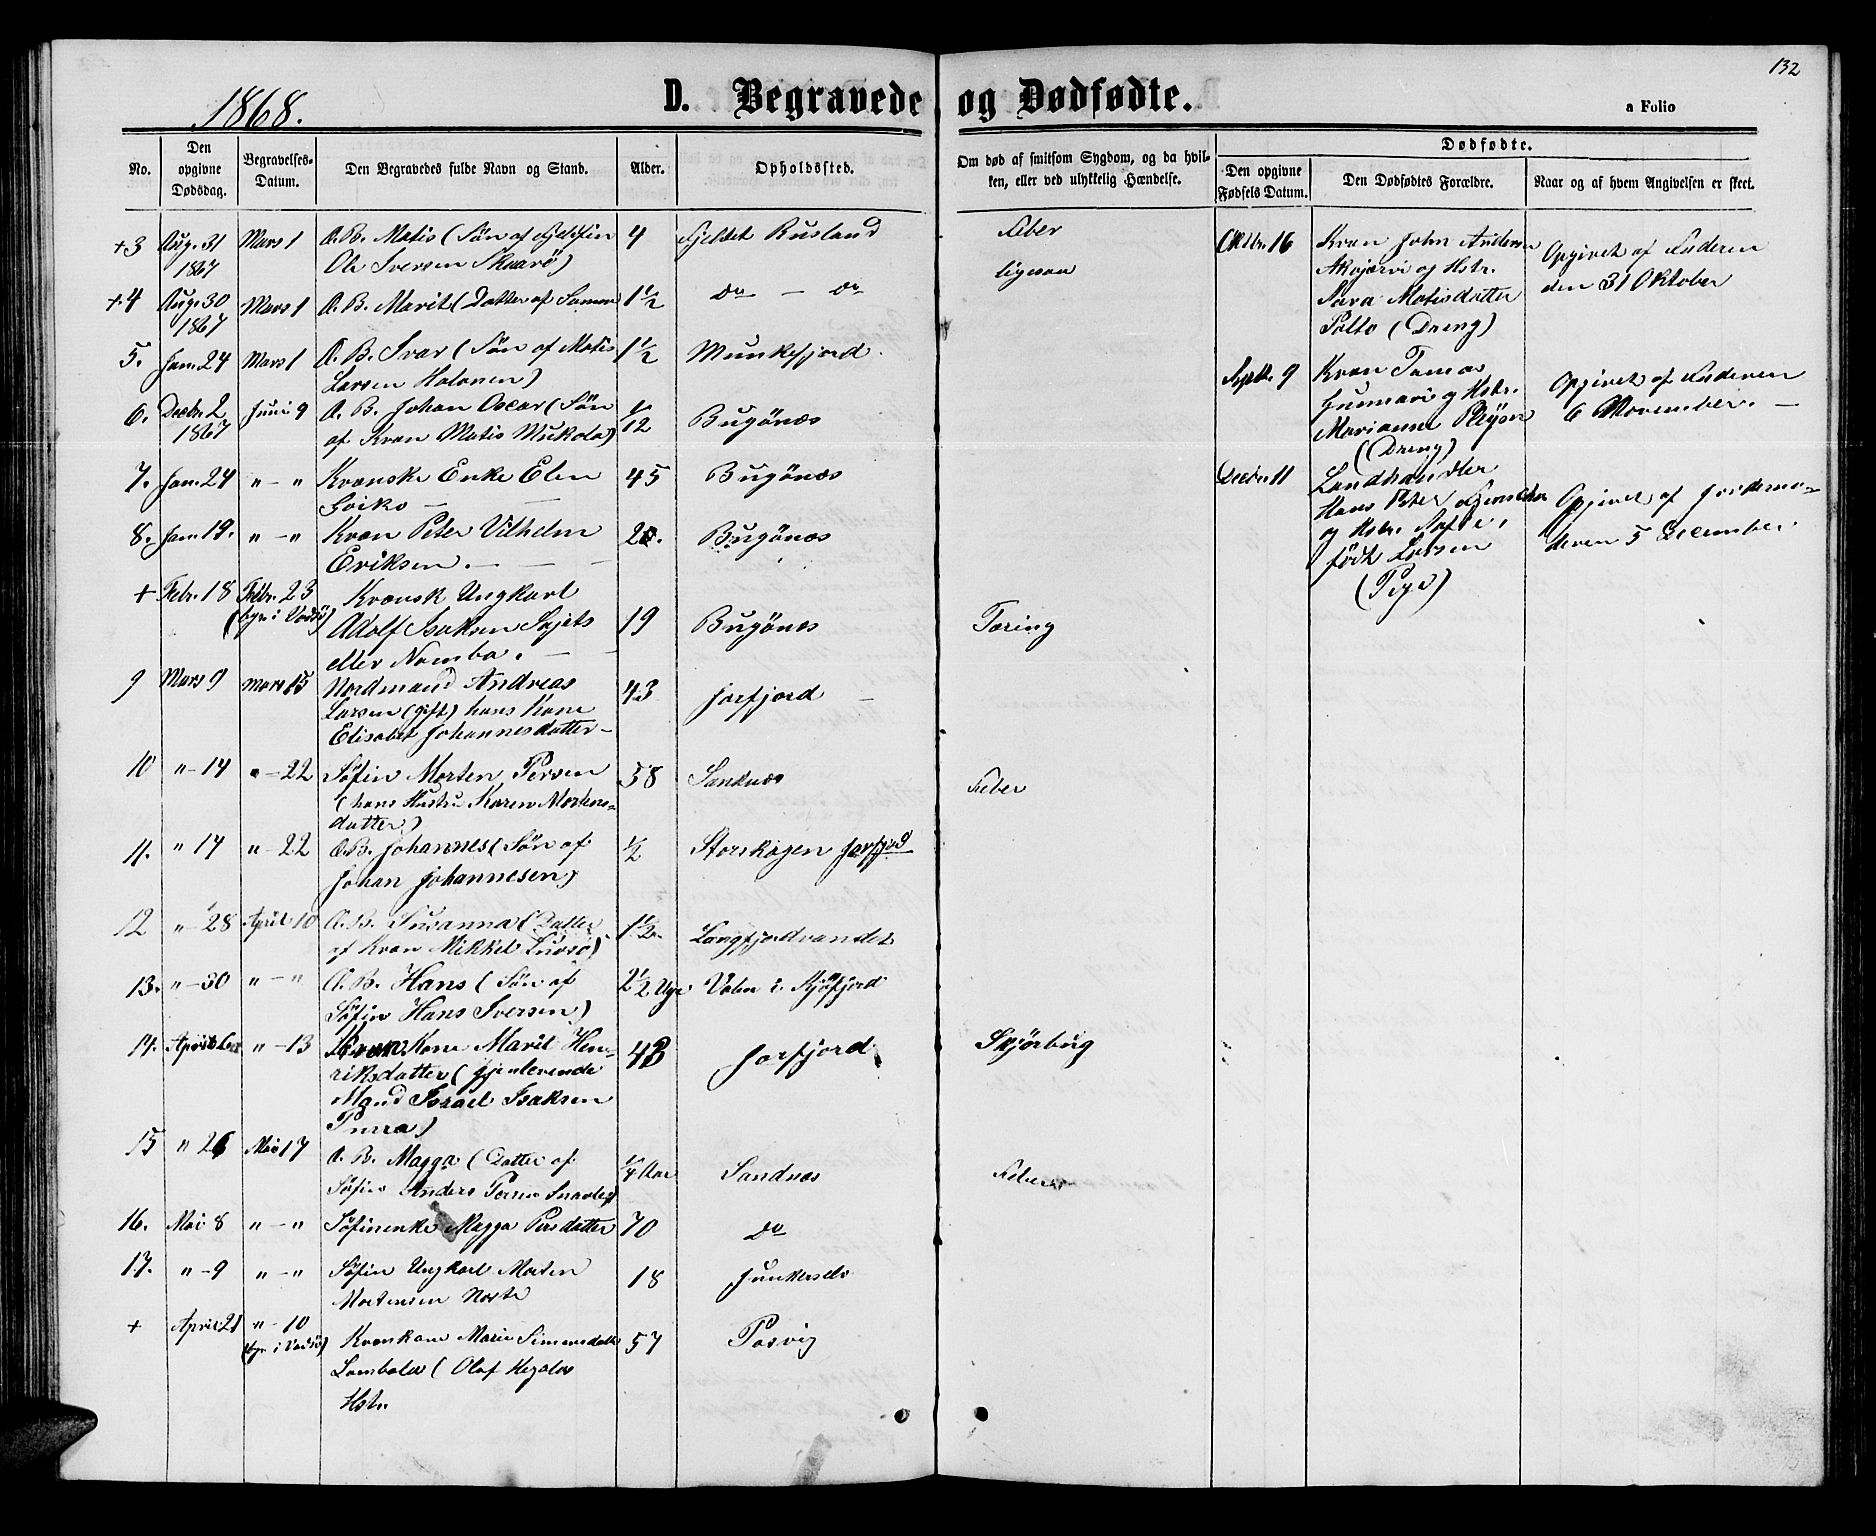 132
1868.
D. Begravede og Dødfødte.
a Folio
No.
Den opgivne Dødsdag.
Begravelses-Datum.
Den Begravedes fulde Navn og Stand.
Alder.
Opholdssted.
Om død af smitsom Sygdom, og da hvil-
ken, eller ved ulykkelig Hændelse.
Dødfødte.
Den opgivne Fødsels Datum.
Den Dødfødtes Forældre.
Naar og af hvem Angivelsen er skeet.
+3 Aug. 31 Mars 1 A. B. Matis (Søn af Fjeldfin 4 Fjeldet Rusland Feber
1867 Ole Iversen Skaarø) ligesaa
+4 Aug. 30 Mars 1 A. B. Marit (Datter af Samme 1 1/2 do - do
1867
5. Jan. 24 Mars 1 A. B. Ivar (Søn af Matis 1 1/2 Munkefjord.
Larsen Halonen)
6. Decbr. 2 Juni 9 A. B. Johan Oscar (Søn 1/12 Bugönæs
1867 af Kvæn Matis Mukola)
7. Jan. 24 " - " Kvænske Enke Elen 45 Bugönæs
Goiko -
8. Jan. 19. " - " Kvæn Peter Vilhelm 20. Bugönæs
Eriksen. -
+ Febr. 18 Febr. 23 Kvænsk Ungkarl
(begr. i Vadsö) Adolf Isaksen Sajets 19 Bugönes Tæring
eller Nomba. -
9 Mars 9 Mars 15 Nordmand Andreas 43 Jarfjord
Larsen (gift) hans Kone
Elisabet Johannesdatter -
10 " - 14 " - 22 Söfin Morten Persen 58 Sandnæs Feber
(hans Hustru Karen Mortens-
datter)
11. " 14 " - 22 A. B. Johannes (Søn af 1/2 Storskogen Jarfjord
Johan Johannesen)
12 " - 28 April 10 A. B. Susanna (Datter 1 1/2. Langfjordvandet
af Kvæn Mikkel
13. " - 30 " - " A. B. Hans (Søn af 2 1/2 Uge Valen i Kjøfjord
Söfin Hans Iversen)
14. April 6 " - 13 Kvæn. Kone Marit Hen- 43 Jarfjord Skjørbug
riksdatter (gjenlevende
Mand Israel Isaksen
15 " 26 Mai 17 A. B. Magga (Datter af 1/4 Aar Sandnæs Feber
Söfin Anders Persen
16. Mai 8 " - " Söfinenke Magga Persdatter 70 do
17. " - 9 " - " Söfin Ungkarl Morten 18 Junkerselv
Mortensen Noste
+ April 21 " - 10 Kvænkone Marie Simonsdatt 57 Pasvig
(begr. i Vadsö) Lambola (Olaf Hegolas
Hstr.
Oktbr. 16 Kvæn John Andersen
Akujærvi og Hstr.
Sara Matisdatter
Palto (Dreng)
Opgivet af Faderen
den 31 Oktober
Septbr. 9 Kvæn Tomas
Gunnari og Hstr.
Marianne
(Dreng)
Opgivet af Faderen
6 November. -
Decbr. 11 Landhandler
Hans Peter
og Hstr. Sofie,
født Larsen
(Pige)
Opgivet af Jordemo-
deren 5 December.